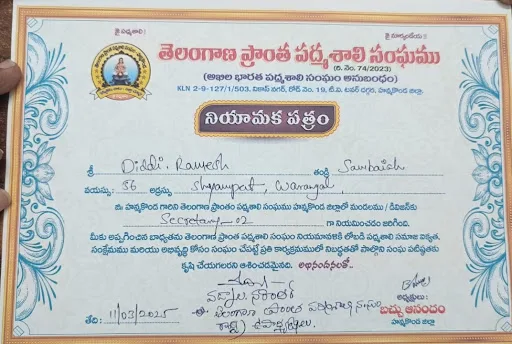 జై పద్మశాలి !
జై మార్కండేయ !!
తెలంగాణ ప్రాంత పద్మశాలి సంఘము
(రి. నెం. 74/2023)
(అఖిల భారత పద్మశాలి సంఘం అనుబంధం)
KLN 2-9-127/1/503, వికాస్ నగర్, రోడ్ నెం. 19, టి.వి. టవర్ దగ్గర, హన్మకొండ జిల్లా.
నియామక పత్రం
శ్రీ Diddi. Ramesh తండ్రి Sambaiah
వయస్సు: 56 అడ్రస్సు Shyampet, Warangal,
ను హన్మకొండ గారిని తెలంగాణ ప్రాంతం పద్మశాలి సంఘము హన్మకొండ జిల్లాలో మండలము / డివిజన్‌కు
Secretary-02 గా నియమించడం జరిగింది.
మీకు అప్పగించిన బాధ్యతను తెలంగాణ ప్రాంత పద్మశాలి సంఘం నియమావళికి లోబడి పద్మశాలి సమాజ ఐక్యత,
సంక్షేమము మరియు అభివృద్ధి కోసం సంఘం చేపట్టే ప్రతి కార్యక్రమములో నిబద్ధతతో పాల్గొని సంఘ పటిష్ఠతకు
కృషి చేయగలరని ఆశించడమైనది. అభినందనలతో..
తెలంగాణ ప్రాంత పద్మశాలి సంఘం
అధ్యక్షులు:
బచ్చు ఆనందం
హన్మకొండ జిల్లా
తేది: 11/03/2025